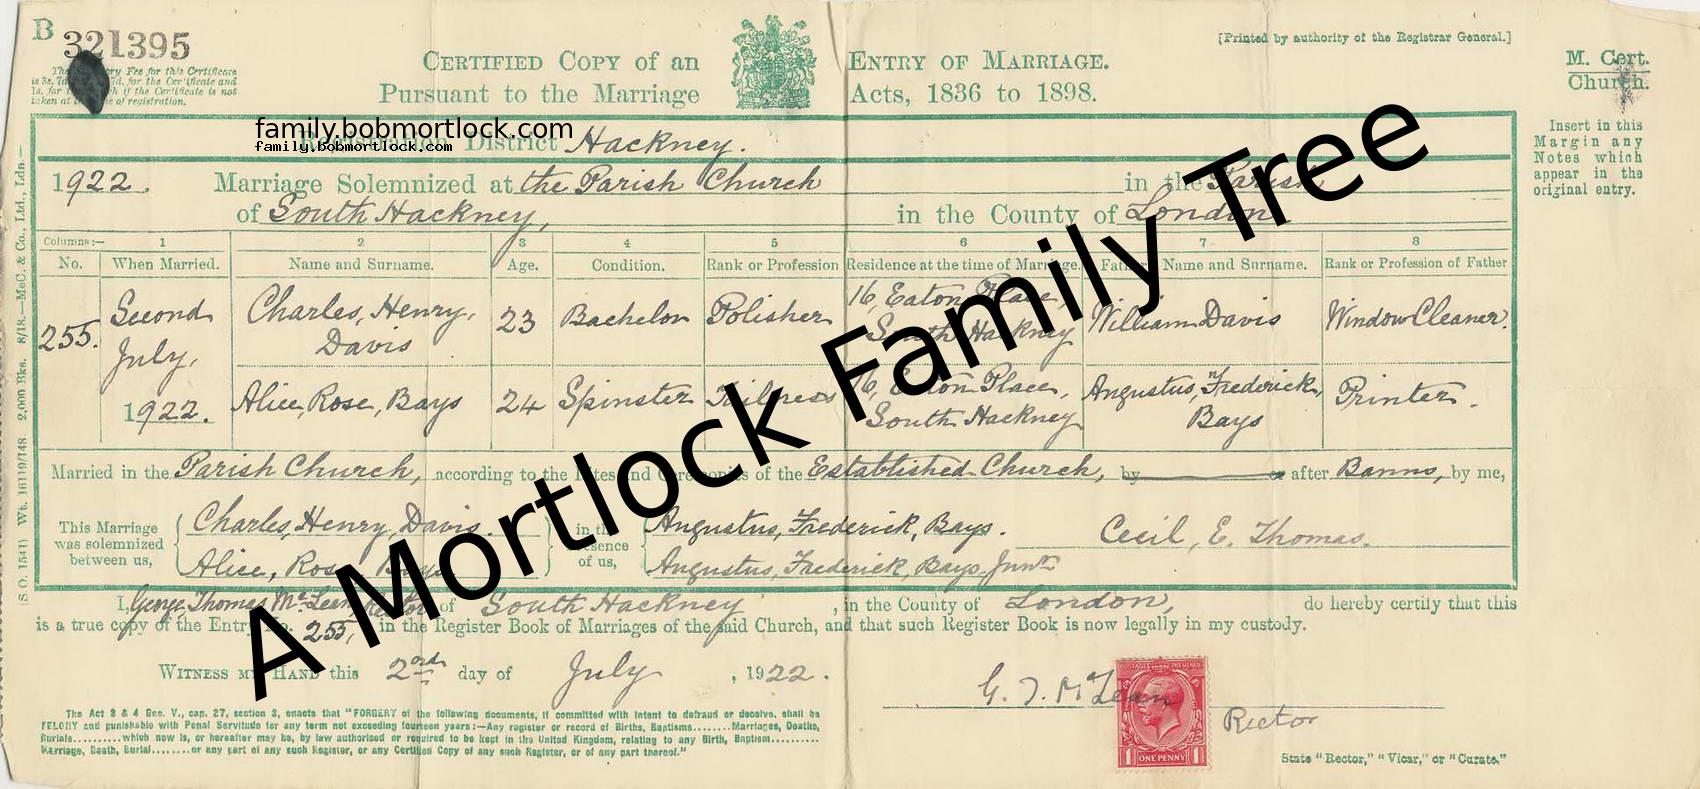 B 321395
[Printed by authority of the Registrar General.]
M. Cert.
Church.
CERTIFIED COPY OF AN ENTRY OF MARRIAGE.
Pursuant to the Marriage Acts, 1836 to 1898.
family.bobmortlock.com
family.bobmortlock.com
District Hackney.
Insert in this
Margin any
Notes which
appear in the
original entry.
1922. Marriage Solemnized at the Parish Church in the Parish
of South Hackney, in the County of London
Columns:— 1 2 3 4 5 6 7 8
No. When Married. Name and Surname. Age. Condition. Rank or Profession Residence at the time of Marriage. Father's Name and Surname. Rank or Profession of Father
255. Second July, 1922. Charles, Henry, Davis 23 Bachelor Polisher 16, Eaton Place, South Hackney William Davis Window Cleaner.
Alice, Rose, Bays 24 Spinster Tailoress 16, Eaton Place, South Hackney Angustus, Frederick, Bays Printer.
Married in the Parish Church, according to the Rites and Ceremonies of the Established Church, by or after Banns, by me,
This Marriage was solemnized between us, Charles, Henry, Davis. in the presence of us, Angustus, Frederick, Bays. Cecil, E. Thomas.
Alice, Rose Bays Angustus, Frederick, Bays Junr
I, George Thomas McLean Rector of South Hackney, in the County of London, do hereby certify that this
is a true copy of the Entry No. 255, in the Register Book of Marriages of the said Church, and that such Register Book is now legally in my custody.
WITNESS MY HAND this 2ord day of July, 1922.
G. T. McLean
Rector
POSTAGE & INLAND REVENUE
1 ONE PENNY 1
The Act 3 & 4 Geo. V., cap. 27, section 3, enacts that "FORGERY of the following documents, if committed with intent to defraud or deceive, shall be
FELONY and punishable with Penal Servitude for any term not exceeding fourteen years:—Any register or record of Births, Baptisms........Marriages, Deaths,
Burials..........which now is, or hereafter may be, by law authorised or required to be kept in the United Kingdom, relating to any Birth, Baptism..........
Marriage, Death, Burial........or any part of any such Register, or any Certified Copy of any such Register, or of any part thereof."
State "Rector," "Vicar," or "Curate."
A Mortlock Family Tree